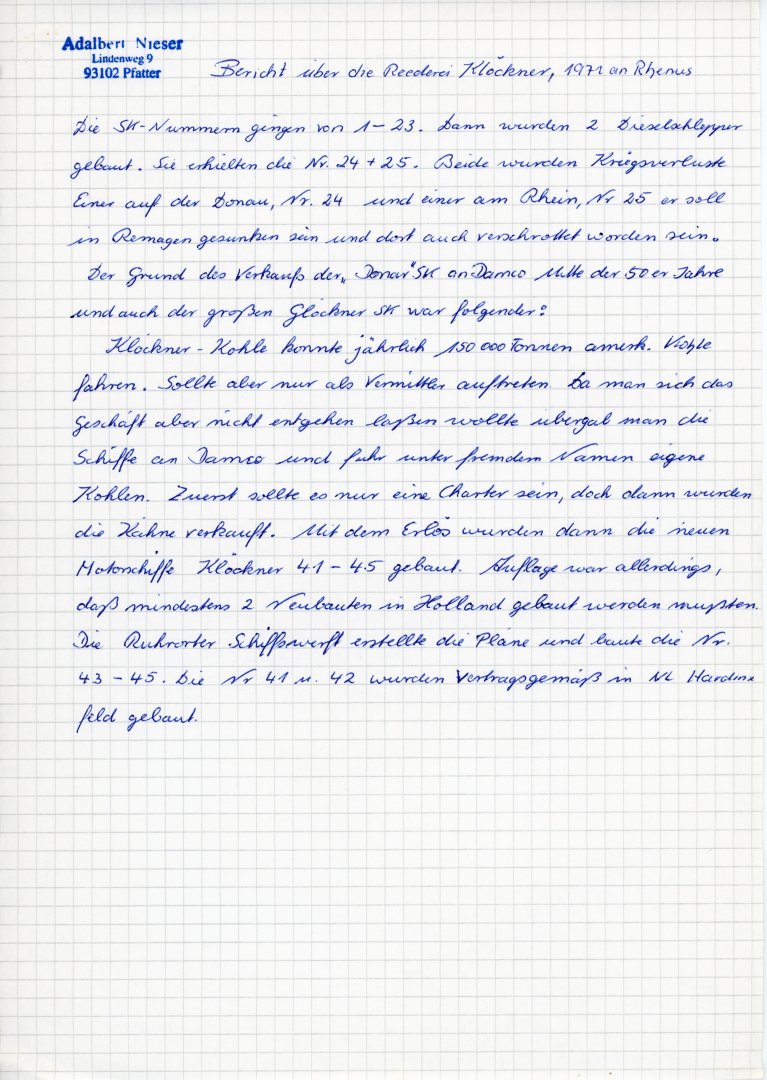 Adalbert Nieser
Lindenweg 9
93102 Pfatter
Bericht über die Reederei Klöckner, 1971 an Rhenus
Die SK-Nummern gingen von 1-23. Dann wurden 2 Dieselschlepper
gebaut. Sie erhielten die Nr. 24 + 25. Beide wurden Kriegsverluste
Einer auf der Donau, Nr. 24 und einer am Rhein, Nr 25 er soll
in Remagen gesunken sein und dort auch verschrottet worden sein.
Der Grund des Verkaufs der „Donar" SK an Damco Mitte der 50er Jahre
und auch der großen Glöckner SK war folgender:
Klöckner-Kohle konnte jährlich 150 000 Tonnen amerk. Kohle
fahren. Sollte aber nur als Vermittler auftreten Da man sich das
Geschäft aber nicht entgehen laßen wollte übergab man die
Schiffe an Damco und fuhr unter fremdem Namen eigene
Kohlen. Zuerst sollte es nur eine Charter sein, doch dann wurden
die Kähne verkauft. Mit dem Erlös wurden dann die neuen
Motorschiffe Klöckner 41-45 gebaut. Auflage war allerdings,
daß mindestens 2 Neubauten in Holland gebaut werden mußten.
Die Ruhrorter Schiffswerft erstellte die Pläne und baute die Nr.
43-45. Die Nr 41 u. 42 wurden Vertragsgemäß in NL Hardinx
feld gebaut.